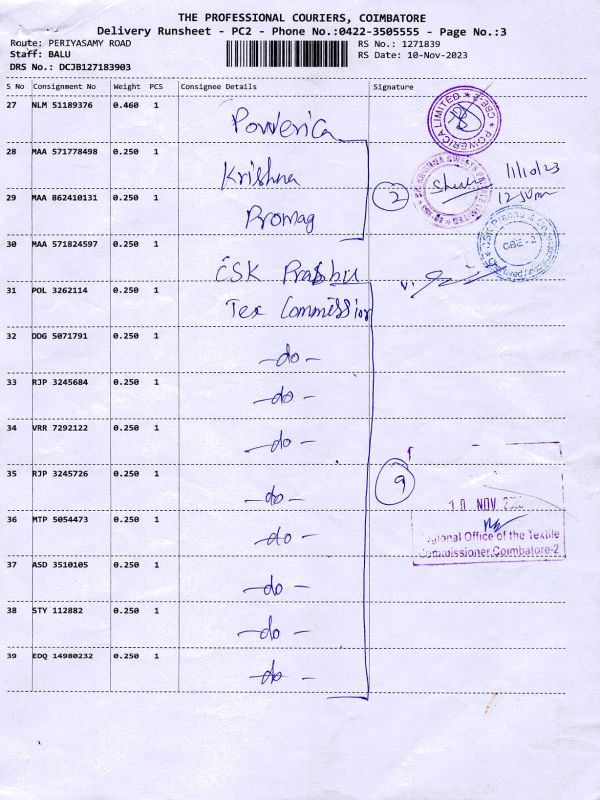 THE PROFESSIONAL COURIERS, COIMBATORE
Delivery Runsheet - PC2 - Phone No.:0422-3505555 - Page No.:3
Route: PERIYASAMY ROAD
RS No.: 1271839
Staff: BALU
RS Date: 10-Nov-2023
DRS No.: DCJB127183903
S No Consignment No Weight PCS Consignee Details Signature
27 NLM 51189376 0.460 1 Powerica
POWERICA LIMITED CBE
28 MAA 571778498 0.250 1 Krishna
2
11/10/23
12.50pm
29 MAA 862410131 0.250 1 Promag
30 MAA 571824597 0.250 1 CSK Prabhu
CBE-2
31 POL 3262114 0.250 1 Tex Commission
32 DDG 5071791 0.250 1 -do-
33 RJP 3245684 0.250 1 -do-
34 VRR 7292122 0.250 1 -do-
35 RJP 3245726 0.250 1 -do-
9
10 NOV
36 MTP 5054473 0.250 1 -do-
Regional Office of the Textile
Commissioner, Coimbatore-2
37 ASD 3510105 0.250 1 -do-
38 STY 112882 0.250 1 -do-
39 EDQ 14980232 0.250 1 -do-